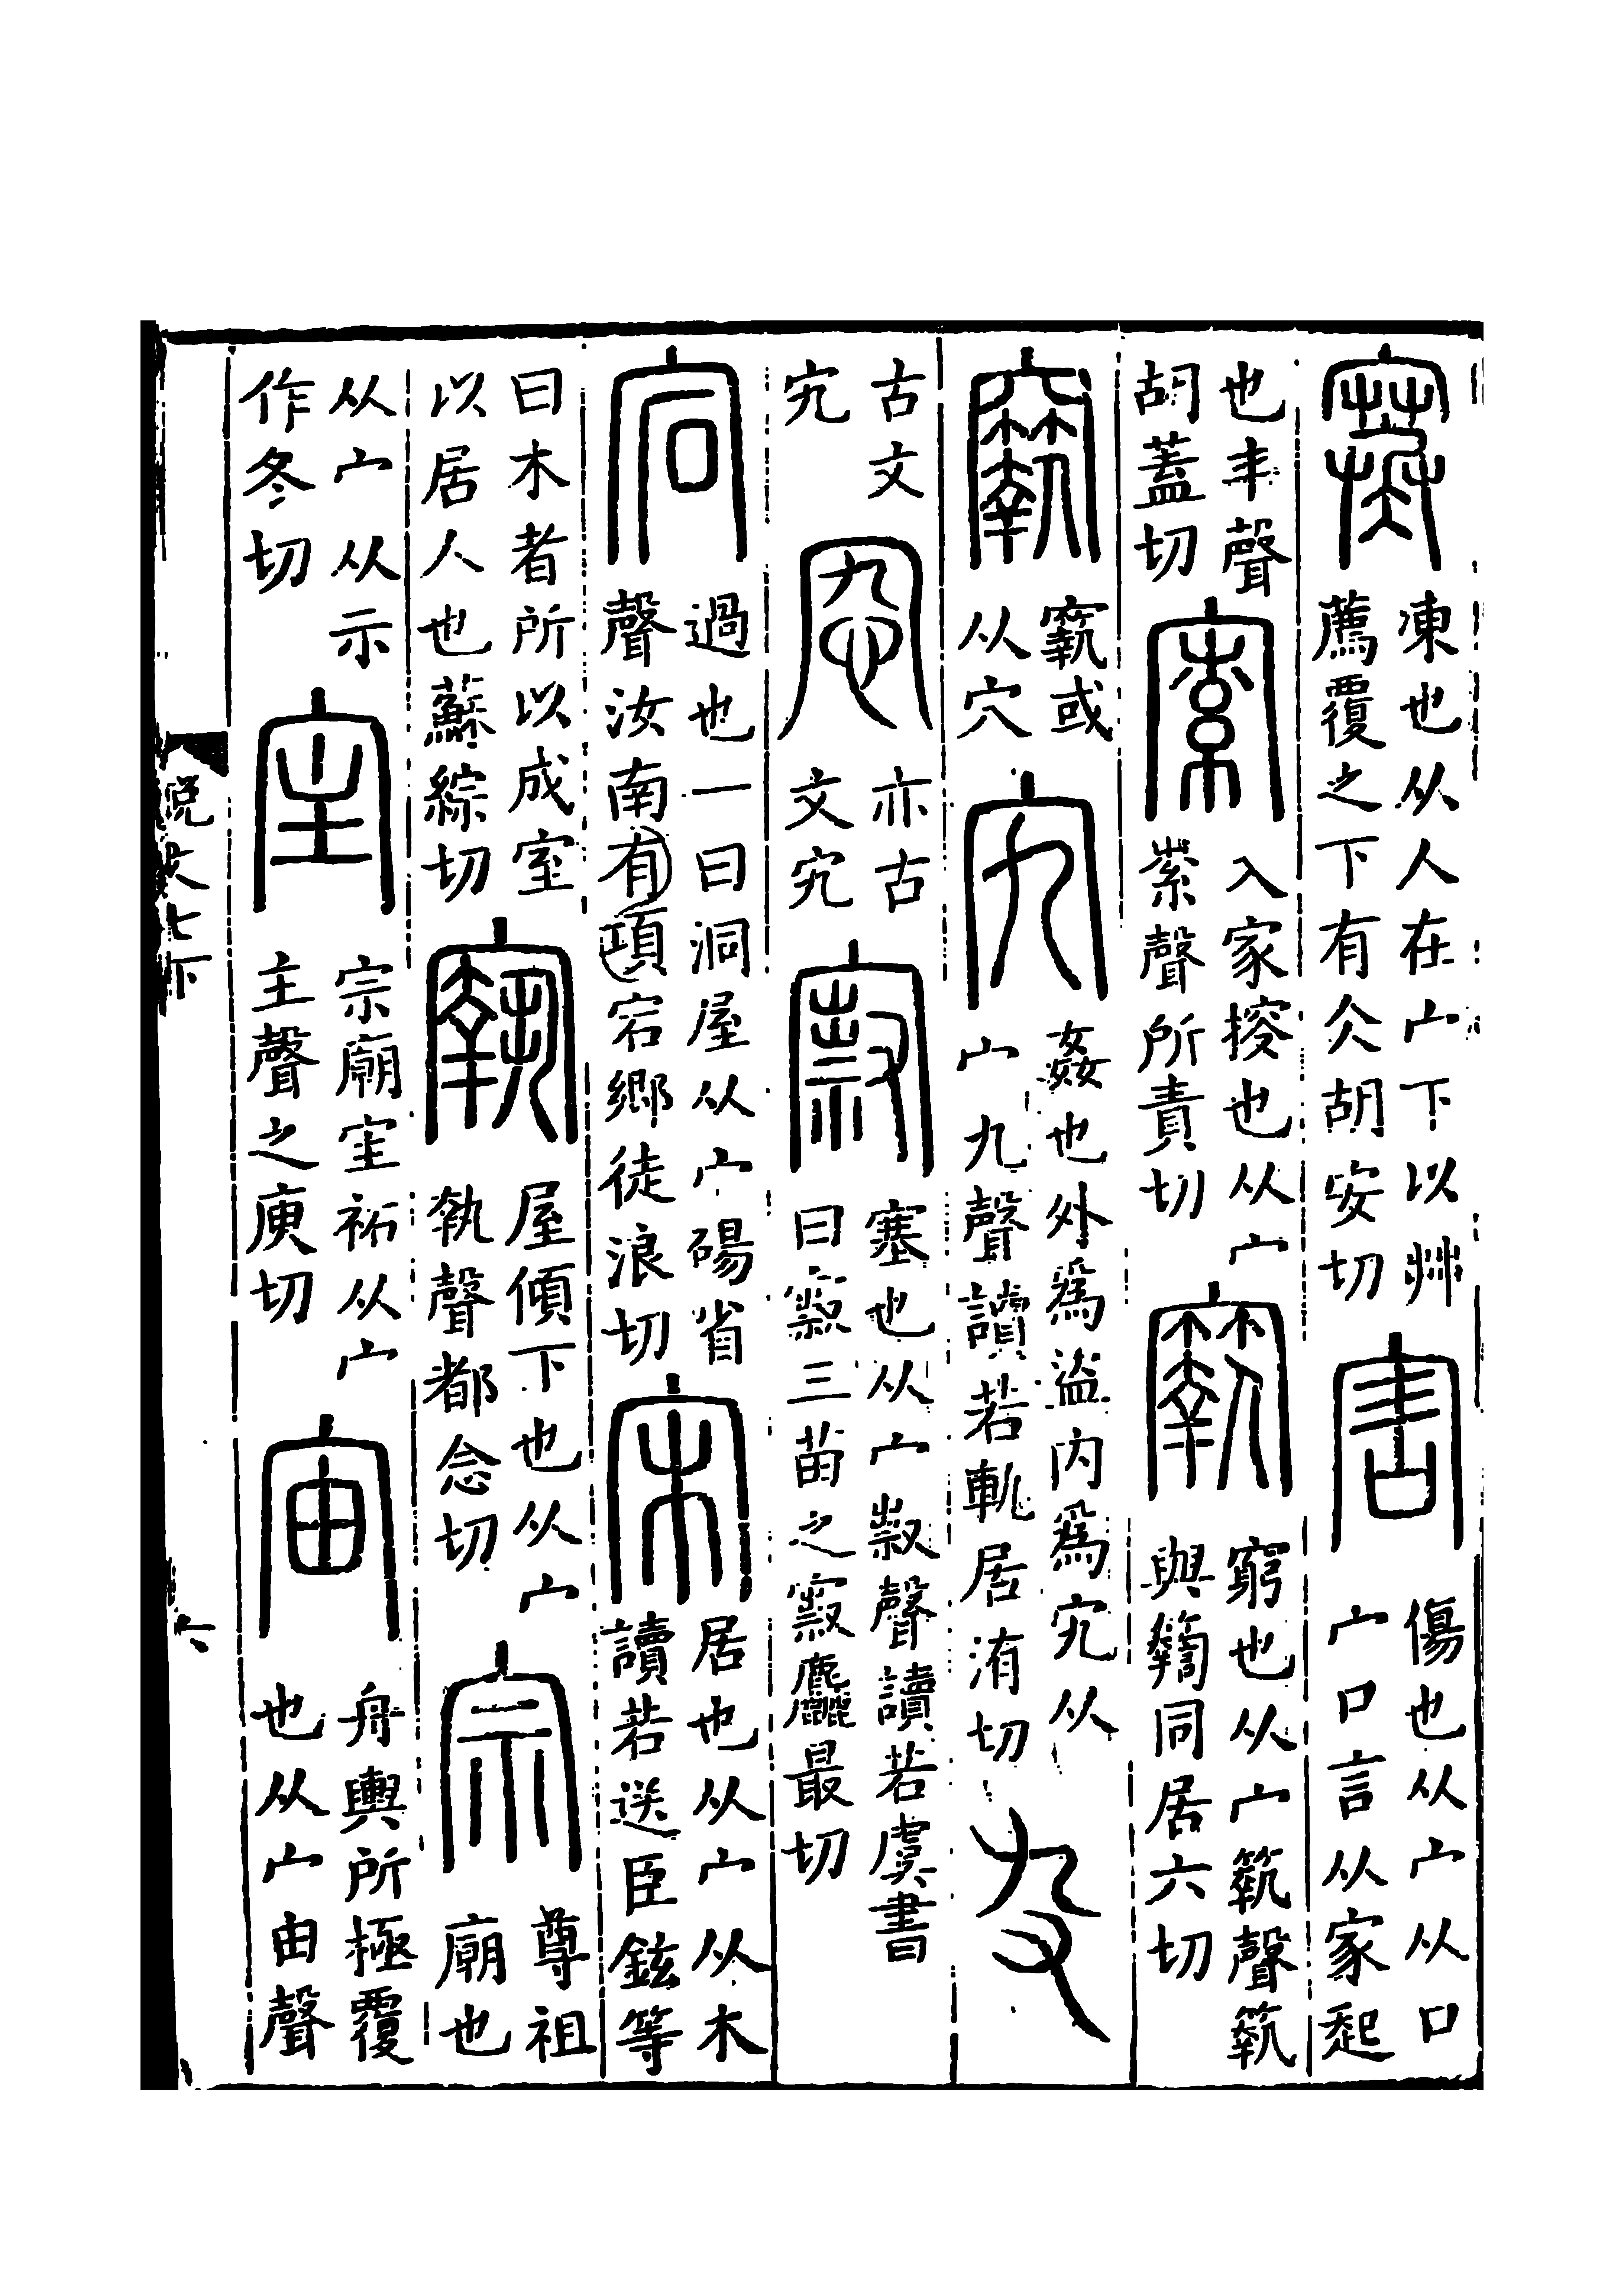 寒凍也从人在宀下以茻薦覆之下有仌胡安切害傷也从宀从口宀口言从家起
也丯聲胡蓋切㝛入家搜也从宀索聲所責切𡫬窮也从宀𥷚聲𥷚與𥷤同居六切
𥨪𡫬或从穴宄姦也外爲盜内爲宄从宀九聲讀若軌居洧切𡦼
古文宄㤲亦古文宄㝮塞也从宀𣀳聲讀若虞書曰㝮三苗之㝮麤最切
宕過也一曰洞屋从宀碭省聲汝南有項宕鄉徒浪切宋居也从宀从木讀若送臣鉉等
曰木者所以成室以居人也蘇綜切㝪屋傾下也从宀執聲都念切宗尊祖廟也
从宀从示作冬切宔宗廟宔祏从宀主聲之庾切宙舟輿所極覆也从宀由聲
說文七下 六